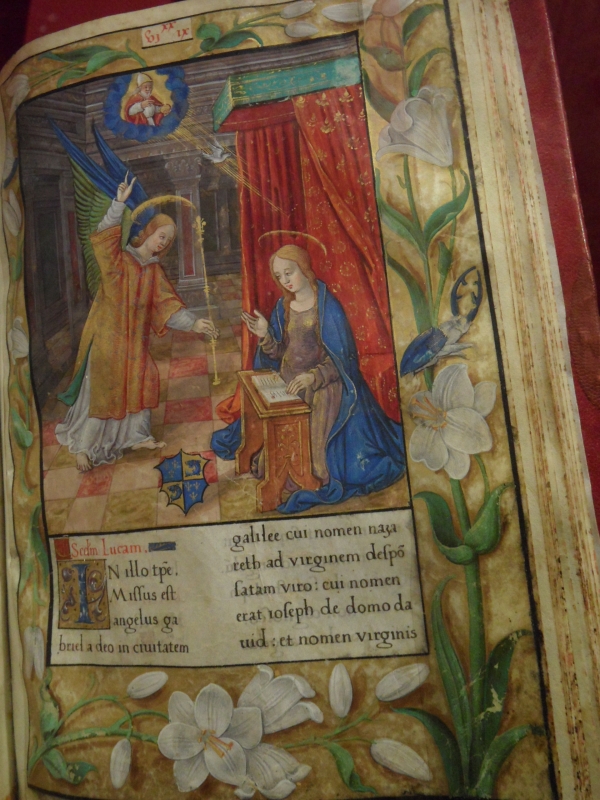 Scđm Lucam.
IN illo tp̄e.
Missus est
angelus ga
briel a deo in ciuitatem
galilee cui nomen naza
reth ad virginem despō
satam viro: cui nomen
erat ioseph de domo da
uid: et nomen virginis